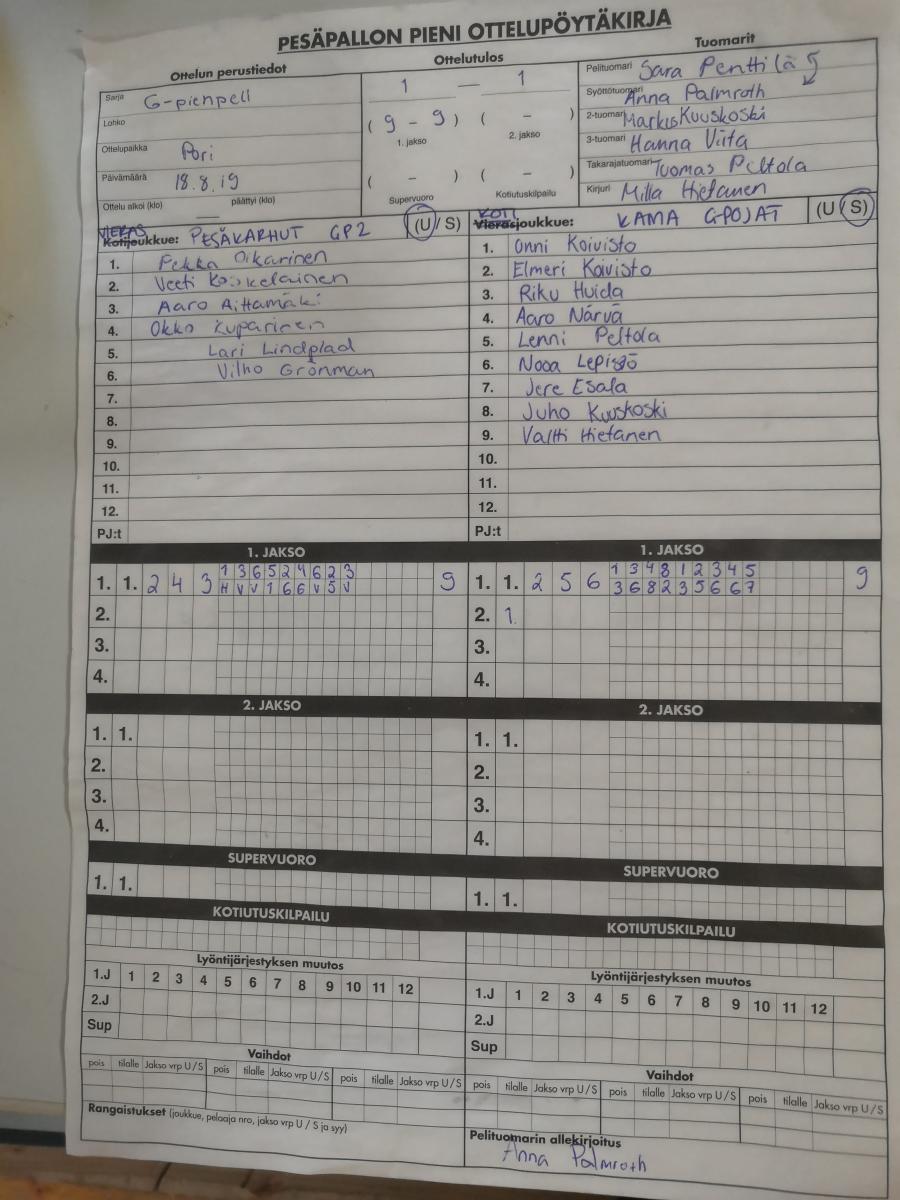 PESÄPALLON PIENI OTTELUPÖYTÄKIRJA
Ottelun perustiedot
Sarja G-pienpeli
Lohko
Ottelupaikka Pori
Päivämäärä 18.8.19
Ottelu alkoi (klo) — päättyi (klo)
Ottelutulos
1 — 1
( 9 - 9 ) ( - )
1. jakso 2. jakso
( - ) ( - )
Supervuoro Kotiutuskilpailu
Tuomarit
Pelituomari Sara Penttilä
Syöttötuomari Anna Palmroth
2-tuomari Markus Kuuskoski
3-tuomari Hanna Viita
Takarajatuomari Tuomas Peltola
Kirjuri Milla Hietanen
VIERAS
Kotijoukkue: PESÄKARHUT GP2 (U/S)
1. Pekka Oikarinen
2. Veeti Koskelainen
3. Aaro Aittamäki
4. Okko Kuparinen
5. Lari Lindplad
6. Vilho Grönman
7.
8.
9.
10.
11.
12.
PJ:t
KOTI
Vierasjoukkue: KAMA GPOJAT (U/S)
1. Onni Koivisto
2. Elmeri Koivisto
3. Riku Huida
4. Aaro Närvä
5. Lenni Peltola
6. Nooa Lepistö
7. Jere Esala
8. Juho Kuuskoski
9. Valtti Hietanen
10.
11.
12.
PJ:t
1. JAKSO
1 3 6 5 2 4 6 2 3
1. 1. 2 4 3 9
H V V 1 6 6 V 5 V
2.
3.
4.
1. JAKSO
1 3 4 8 1 2 3 4 5
1. 1. 2 5 6 9
3 6 8 2 3 5 6 6 7
2. 1.
3.
4.
2. JAKSO
1. 1.
2.
3.
4.
2. JAKSO
1. 1.
2.
3.
4.
SUPERVUORO
1. 1.
SUPERVUORO
1. 1.
KOTIUTUSKILPAILU
KOTIUTUSKILPAILU
Lyöntijärjestyksen muutos
1.J 1 2 3 4 5 6 7 8 9 10 11 12
2.J
Sup
Lyöntijärjestyksen muutos
1.J 1 2 3 4 5 6 7 8 9 10 11 12
2.J
Sup
Vaihdot
pois tilalle Jakso vrp U/S pois tilalle Jakso vrp U/S pois tilalle Jakso vrp U/S
Vaihdot
pois tilalle Jakso vrp U/S pois tilalle Jakso vrp U/S pois tilalle Jakso vrp U/S
Rangaistukset (joukkue, pelaaja nro, jakso vrp U / S ja syy)
Pelituomarin allekirjoitus
Anna Palmroth